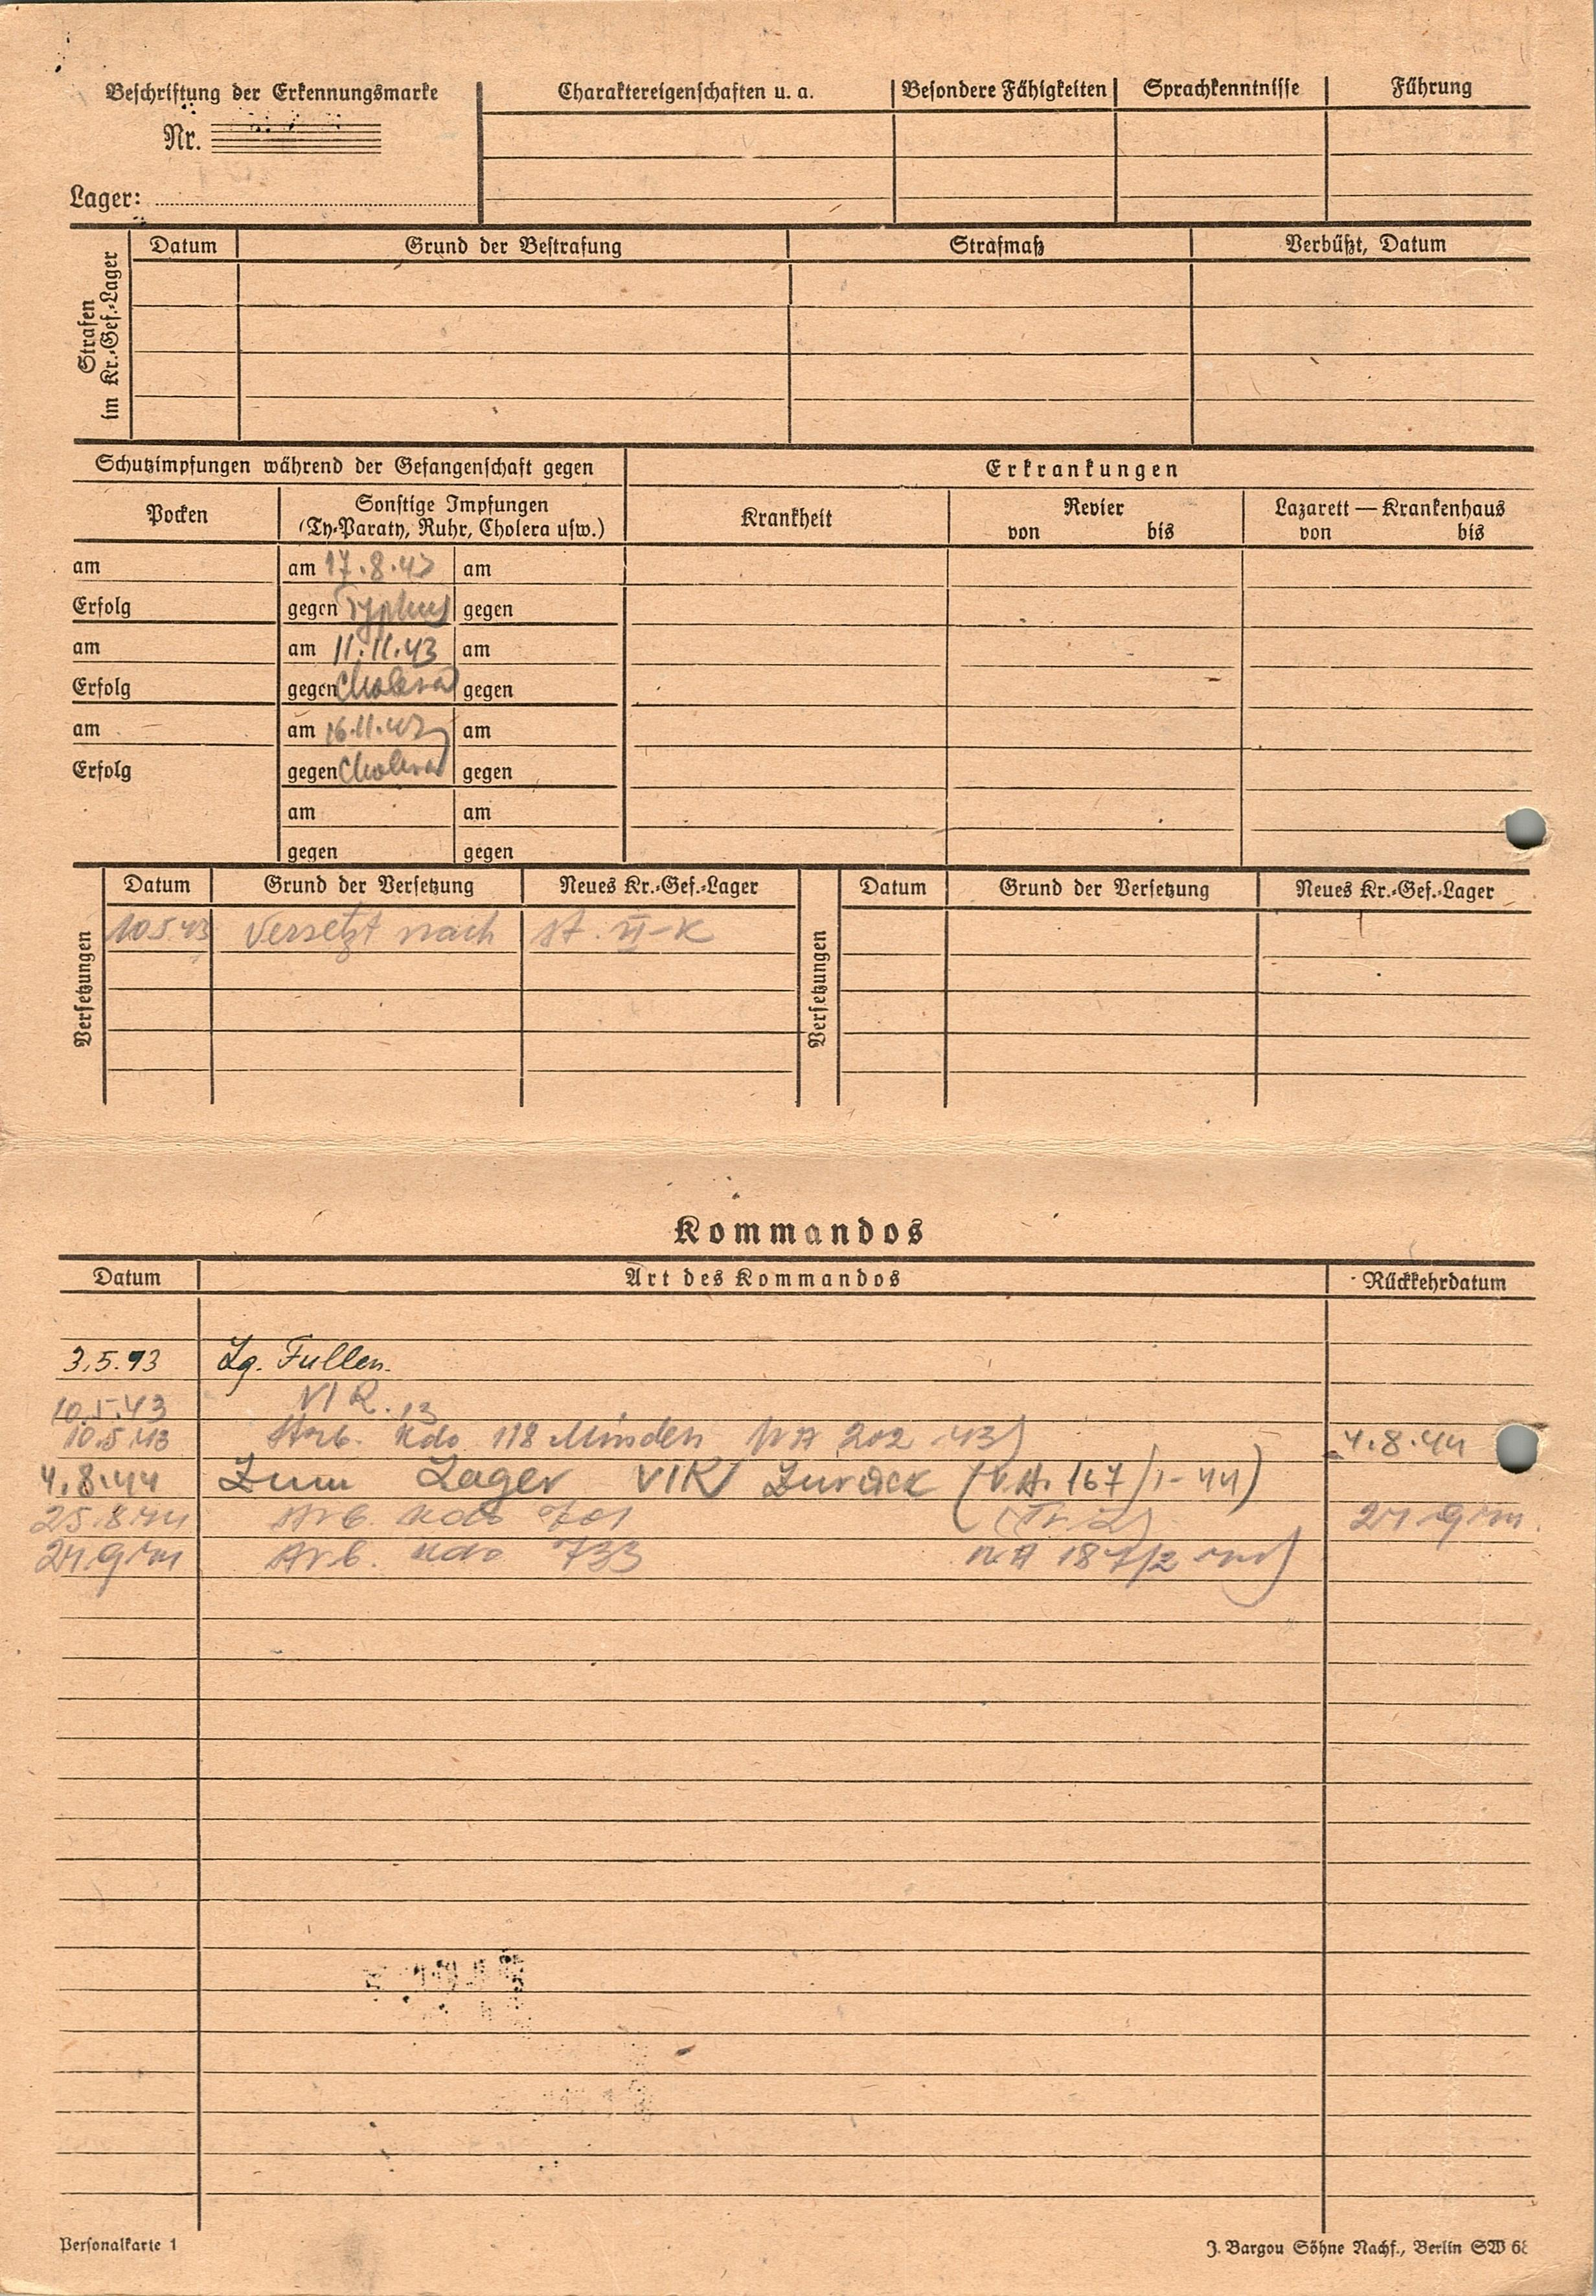 Beschriftung der Erkennungsmarke
Nr.
Lager:
Charaktereigenschaften u. a. Besondere Fähigkeiten Sprachkenntnisse Führung
Strafen im Kr.-Gef.-Lager
Datum Grund der Bestrafung Strafmaß Verbüßt, Datum
Schutzimpfungen während der Gefangenschaft gegen Erkrankungen
Pocken Sonstige Impfungen (Ty-Paraty, Ruhr, Cholera usw.) Krankheit Revier von bis Lazarett — Krankenhaus von bis
am am 17.8.43 am
Erfolg gegen Typhus gegen
am am 11.11.43 am
Erfolg gegen Cholera gegen
am am 16.11.43 am
Erfolg gegen Cholera gegen
am am
gegen gegen
Versetzungen Datum Grund der Versetzung Neues Kr.-Gef.-Lager Versetzungen Datum Grund der Versetzung Neues Kr.-Gef.-Lager
10.5.43 versetzt nach St. VI-K
Kommandos
Datum Art des Kommandos Rückkehrdatum
3.5.43 Lg. Fullen.
10.5.43 VI K.
10.5.43 Arb. Kdo 118 Minden 202 43) 4.8.44
4.8.44 Zum Lager VIK Zurück (V.A. 167/1-44)
25.8.44 Arb. Kdo 701 24.9.44
24.9.44 Arb. Kdo 733 187/2 44)
Personalkarte 1
J. Bargou Söhne Nachf., Berlin SW 68